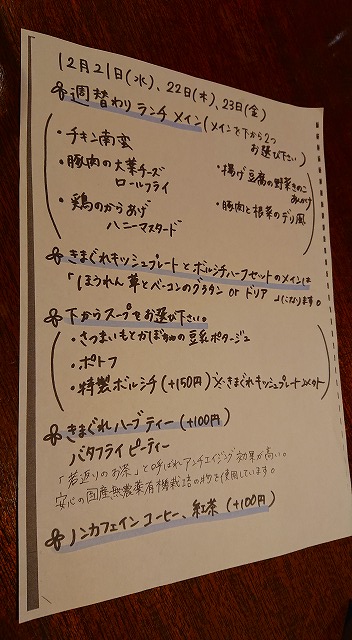 12月21日(水)、22日(木)、23日(金)
週替わりランチメイン(メインを下から2つ
お選び下さい)
・チキン南蛮
・豚肉の大葉チーズ
ロールフライ
・鶏のからあげ
ハニーマスタード
・揚げ豆腐の野菜きのこ
あんかけ
・豚肉と根菜のデリ風
きまぐれキッシュプレートとボルシチハーフセットのメインは
「ほうれん草とベーコンのグラタン or ドリア」になります。
下からスープをお選び下さい。
・さつまいもとかぼちゃの豆乳ポタージュ
・ポトフ
・特製ボルシチ(+150円)※きまぐれキッシュプレートのみ
きまぐれハーブティー(+100円)
バタフライピーティー
「若返りのお茶」と呼ばれアンチエイジング効果が高い。
安心の国産無農薬有機栽培の物を使用しています。
ノンカフェインコーヒー、紅茶(+100円)